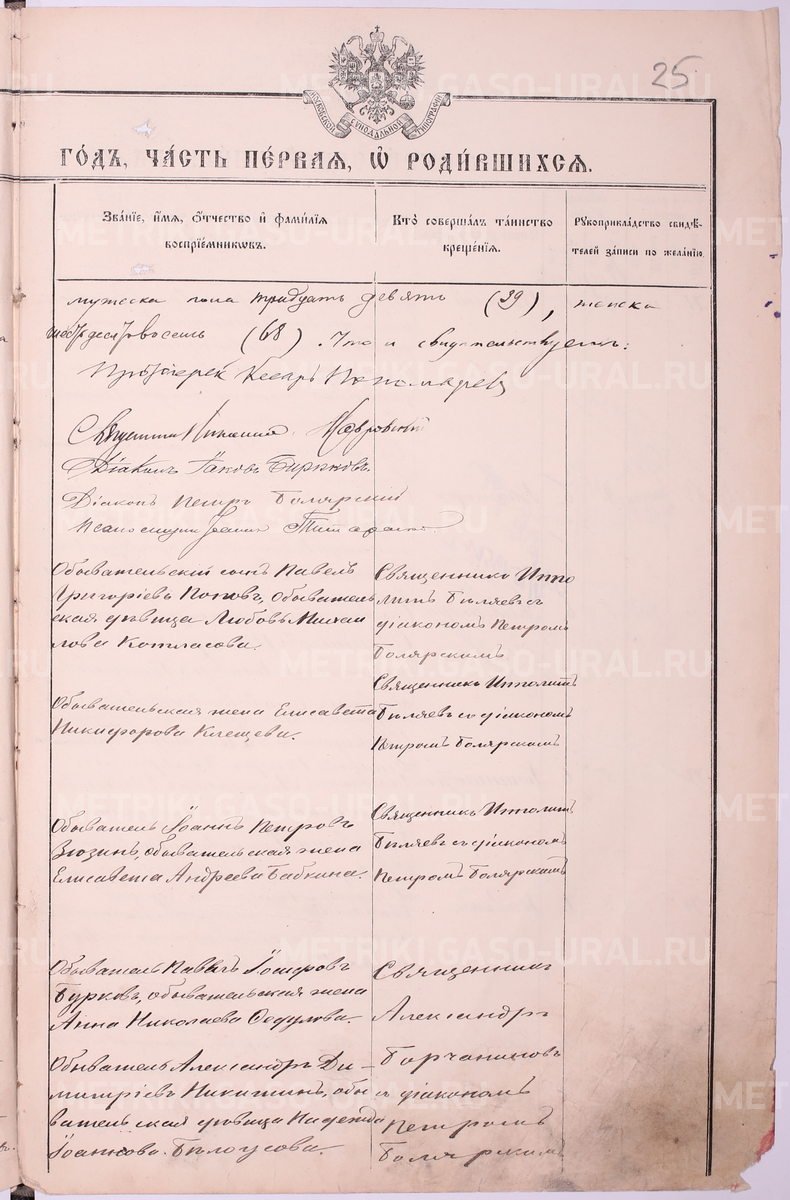 25
МОСКОВСКОЙ СѴНОДАЛЬНОЙ ТИПОГРАФІИ
ГО́ДЪ, ЧА́СТЬ ПЕ́РВАѦ, Ѡ҆ РОДИ́ВШИХСѦ.
Зва́нїе, и҆́мѧ, ѻ҆́тчество и҆ фами́лїѧ
воспрїе́мникѡвъ.
Кто̀ соверша́лъ та́инство
креще́нїѧ.
Рꙋкоприкла́дство свидѣ́-
телей за́писи по жела́нїю.
мужеска пола тридцать девять (39), женска
шестьдесятъ восемь (68). Что и свидѣтельствуемъ:
Протоіерей Кесарь Пономаревъ
Священникъ
Діаконъ Іаковъ Бирюковъ.
Діаконъ Петръ Болярскій
Псаломщикъ Іоаннъ
Обывательскій сынъ Павелъ
Григоріевъ Поповъ, обыватель
ская дѣвица Любовь Михаи
лова Котласова.
Священникъ Иппо
литъ Бѣляевъ съ
діакономъ Петромъ
Болярскимъ
Обывательская жена Елисавета
Никифорова Клещева.
Священникъ Ипполитъ
Бѣляевъ съ діакономъ
Петромъ Болярскимъ
Обыватель Іоаннъ Петровъ
Зюзинъ, обывательская жена
Елисавета Андреева Бабкина.
Священникъ Ипполитъ
Бѣляевъ съ діакономъ
Петромъ Болярскимъ
Обыватель Павелъ
Бурковъ, обывательская жена
Анна Николаева Федулова.
Священникъ
Александръ
Обыватель Александръ Ди-
митріевъ Никитинъ, обы
вательская дѣвица Надежда
Іоаннова Бѣлоусова.
Торчаниновъ
съ діакономъ
Петромъ
Болярскимъ
METRIKI.GASO-URAL.RU